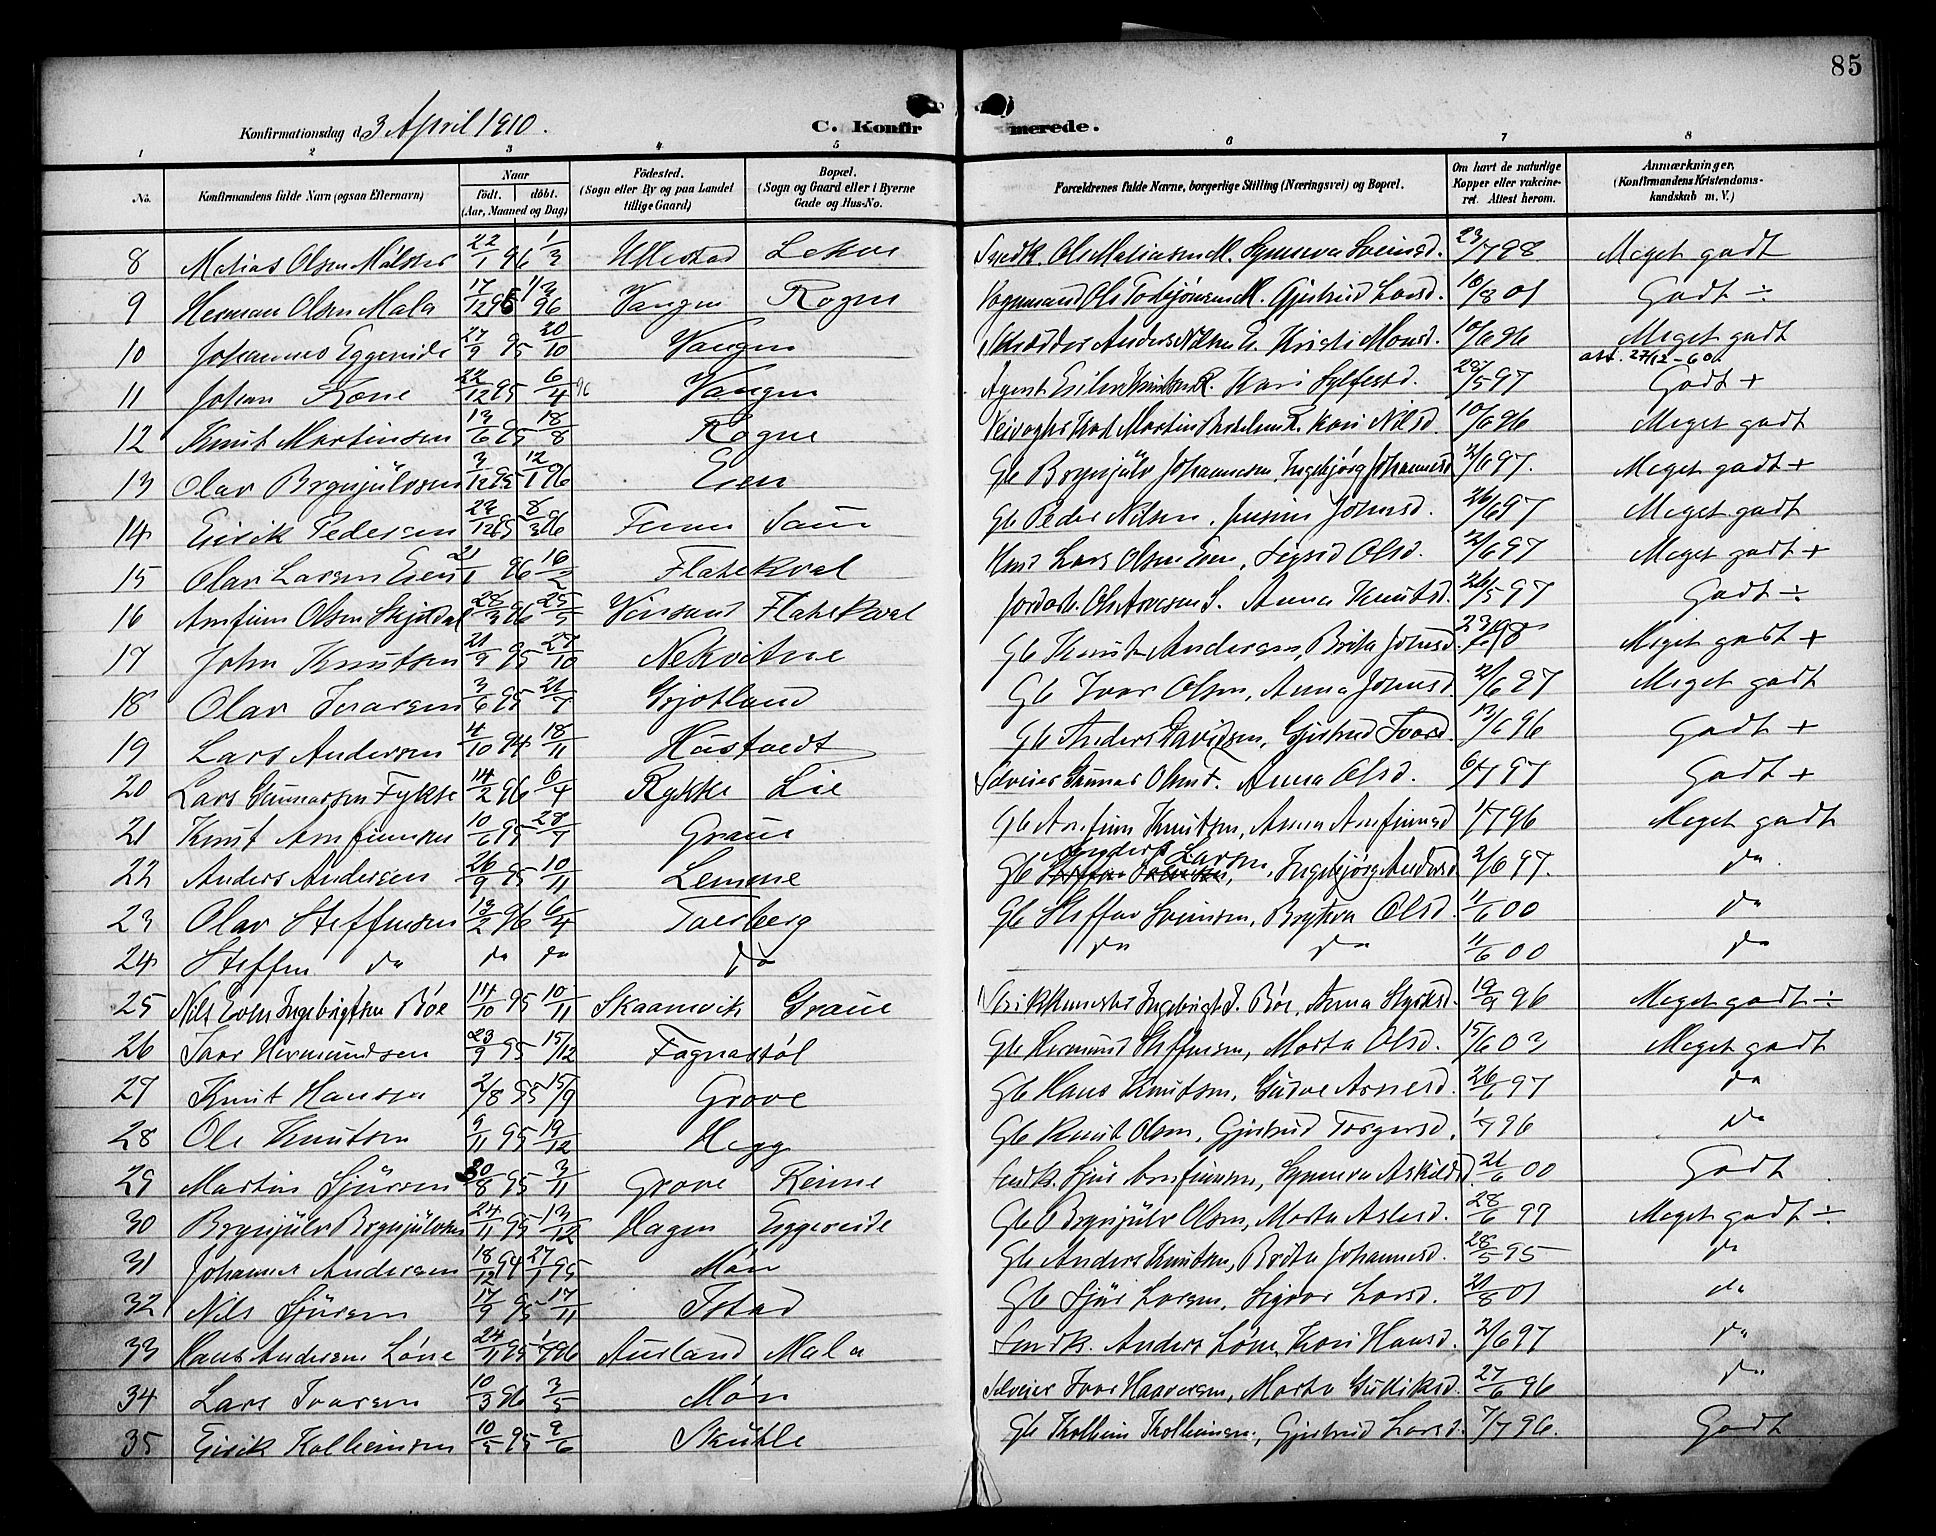 85
Konfirmationsdag d. 3 April 1910.
C. Konfirmerede.
1 2 3 4 5 6 7 8
No. Konfirmandens fulde Navn (ogsaa Efternavn) Naar födt. döbt. (Aar, Maaned og Dag) Födested. (Sogn eller By og paa Landet tillige Gaard) Bopæl. (Sogn og Gaard eller i Byerne Gade og Hus-No. Forældrenes fulde Navne, borgerlige Stilling (Næringsvei) og Bopæl. Om havt de naturlige Kopper eller vakcineret. Attest herom. Anmærkninger, (Konfirmandens Kristendomskundskab m. V.)
8 Matias Olsen 22/1 96 1/3 Ullestad Lekve Ole Matiasen M. Synneva Sveinsd. 23/7 98 Meget godt
9 Herman Olsen Mala 17/12 95 1/3 96 Vangen Rogne Ole Torbjörnsen M. Gjertrud Larsd. 10/8 01 Godt ÷
10 Johannes Eggereide 27/9 95 20/10 Vangen Skrædder Anders Nilsen E. Kristi Monsd. 10/6 96 Meget godt
att. 27/12-60.
11 Johan Rone 22/12 95 6/4 96 Vangen Agent Erik Knutsen R. Kari Sylfestd. 20/5 97 Godt +
12 Knut Martinsen 13/6 95 18/8 Rogne Martin Kari Nilsd. 10/6 96 Meget godt
13 Olav Brynjülvsen 3/12 95 12/1 96 Eien Gb Brynjülv Johannesen, Ingebjörg Johannesd 2/6 97. Meget godt +
14 Eirik Pedersen 22/12 95 8/3 96 Fenne Saue Gb Peder Nilsen, Johnsd. 26/6 97 Meget godt
15 Olav Larsen Eien 21/1 96 16/2 Flatekval Lars Olsen Eien, Sigrid Olsd. 2/6 97 Meget godt +
16 Arnfinn Olsen Skjeldal 28/3 96 25/5 Vinsand Flatekval Ole S. Anna Knutsd. 26/5 97 Godt ÷
17 John Knutsen 21/9 95 27/10 Nekvitne Gb Knut Andersen, Brita Johnsd. 98 Meget godt +
18 Olav Ivarsen 3/6 95 21/7 Grjotland Gb Ivar Olsen, Anna Johnsd 2/6 97 Meget godt
19 Lars Andersen 4/10 94 18/11 Hustvedt Gb Anders Davidsen, Gjertrud Ivarsd. 13/6 96 Godt +
20 Lars Gunnarsen Fykse 14/2 96 6/4 Rykke Lie Selveier Gunnar Olsen F. Anna Olsd. 6/7 97 Godt +
21 Knut Arnfinnsen 10/6 95 28/7 Graue Gb Arnfinn Knutsen, Anna Arnfinnsd 1/7 96 Meget godt
22 Anders Andersen 26/9 95 10/11 Lemme Gb Anders Larsen, Ingebjörg Andersd 2/6 97. do
23 Olav Steffensen 13/2 96 6/4 Tverberg Gb Steffen Sveinsen, Bryteva Olsd. 1/6 00 do
24 Steffen do do do do do do 1/6 00 do
25 Nils Ingebrigtsen Böe 14/10 95 10/11 Skaanevik Graue Ingebrigt J. Böe, Anna Styrksd. 19/9 96 Meget godt ÷
26 Ivar Hermundsen 23/9 95 15/12 Fagnastöl Gb Hermund Steffensen, Marta Olsd. 15/6 03 Meget godt
27 Knut Hansen 2/8 95 15/9 Grove Gb Hans Knutsen, Gudve Arnesd. 26/6 97 do
28 Ole Knutsen 9/11 95 19/12 Hegg Gb Knut Olsen, Gjertrud Torgersd. 1/7 96 do
29 Martin Sjürsen 30/8 95 3/11 Grove Reime Sjur Arnfinnsen, Synneva Askildsd. 21/6 00 Godt
30 Brynjülv Brynjülvsen 24/11 95 13/12 Hagen Eggereide Gb Brynjülv Olsen, Marta Aslesd. 28/6 99 Meget godt ÷
31 Johannes Andersen 18/12 94 27/1 95 Mön Gb Anders Knutsen, Brita Johannesd. 28/5 95 do
32 Nils Sjürsen 17/9 95 17/11 Istad Gb Sjür Larsen, Sigvor Larsd. 21/8 01 do
33 Hans Andersen Löne 24/11 95 1/1 96 Aurland Mala Anders Löne, Kari Hansd. 2/6 97 do
34 Lars Ivarsen 10/3 96 3/5 Mön Selveier Ivar Haavarsen, Marta Gulliksd. 27/6 96 do
35 Eirik Kolbeinsen 10/5 95 9/6 Skutle Gb Kolbein Kolbeinsen, Gjertrud Larsd. 7/7 96. Godt